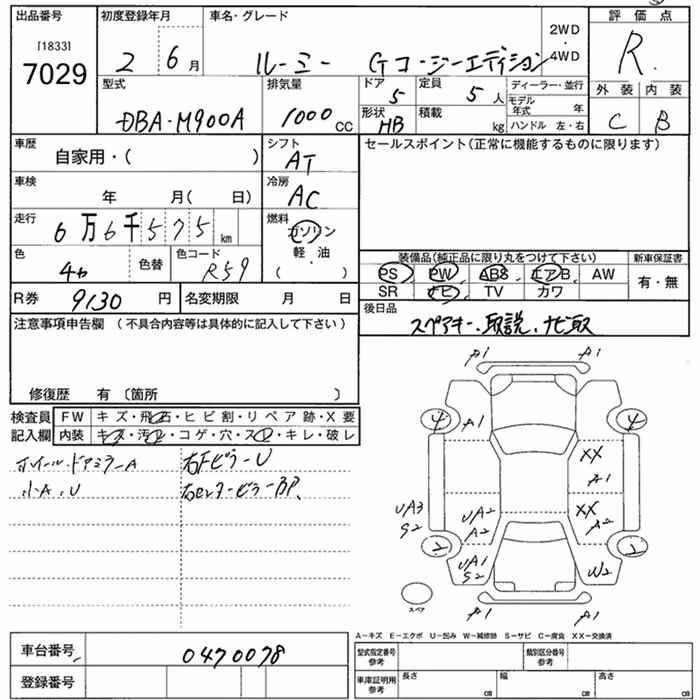 出品番号 初度登録年月 車名・グレード 2WD 評価点
[1833] 7029 2 6月 ルーミー Gコージーエディション ・ 4WD R
型式 排気量 ドア 5 定員 5人 ディーラー・並行 外装 内装
DBA-M900A 1000cc 形状 HB 積載 kg モデル年式 年 ハンドル 左・右 C B
車歴 自家用・( ) シフト AT セールスポイント(正常に機能するものに限ります)
車検 年 月( 日) 冷房 AC
走行 6万6千575km 燃料 ガソリン
軽・油
( )
色 色替 色コード R59
装備品(純正品に限り丸をつけて下さい) 新車保証書
PS PW ABS エアB AW 有・無
SR ナビ TV カワ
R券 9130円 名変期限 月 日
後日品 スペアキー、取説、ナビ取
注意事項申告欄 (不具合内容等は具体的に記入して下さい)
修復歴 有〔箇所 〕
検査員 FW キズ・飛石・ヒビ割・リペア跡・X要
記入欄 内装 キズ・汚レ・コゲ・穴・スレ・キレ・破レ
ホイール・ドアミラーA 右Fピラー U
小A、U 右センターピラーBP、
A1 A1
4 A1 4
XX
A1
UA3 S2 UA2 A2 XX A2
2 2
UA1 S2 W2
スペア
A1 A1
A-キズ E-エクボ U-凹み W-補修跡 S-サビ C-腐食 XX-交換済
車台番号 0470078
型式指定番号 参考 類別区分番号 参考
登録番号
車庫証明用 参考 長さ cm 幅 cm 高さ cm